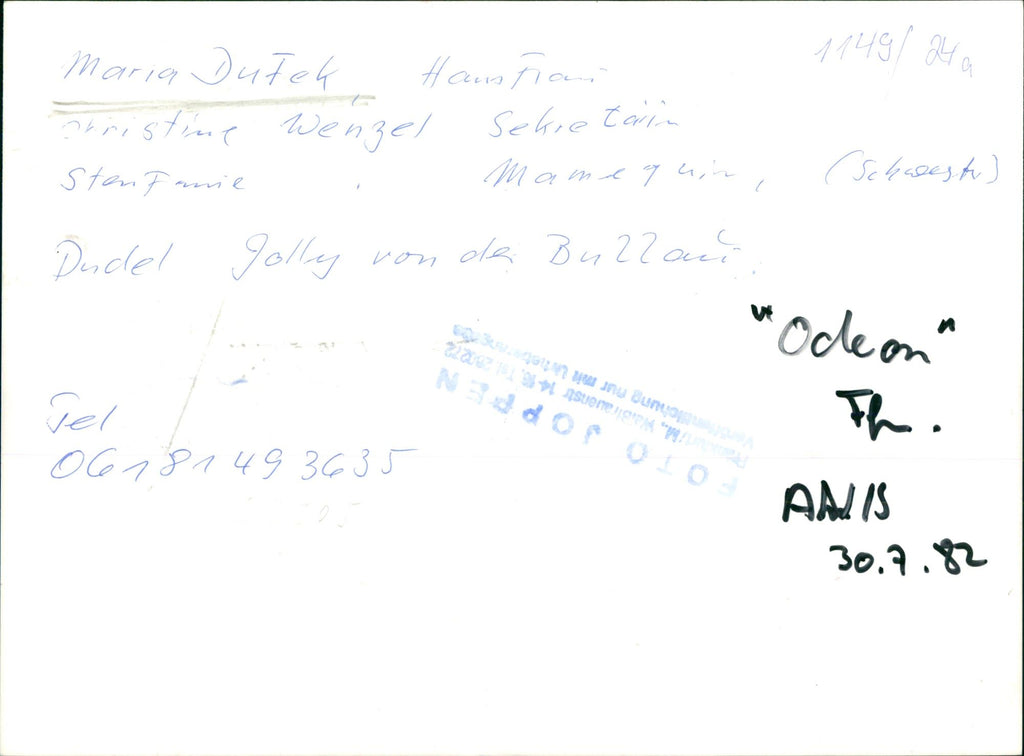 1149/24a
Maria Dufek, Hausfrau
Christine Wenzel Sekretärin
Stenfanie Mannequin, (Schwester)
Pudel Jolly von der
Tel
06181493635
"Odeon"
Ffm.
30.7.82
FOTO JOPPEN
Frankfurt/M., Weißfrauenstr. 14-16, Tel.
Veröffentlichung nur mit Urheberangabe